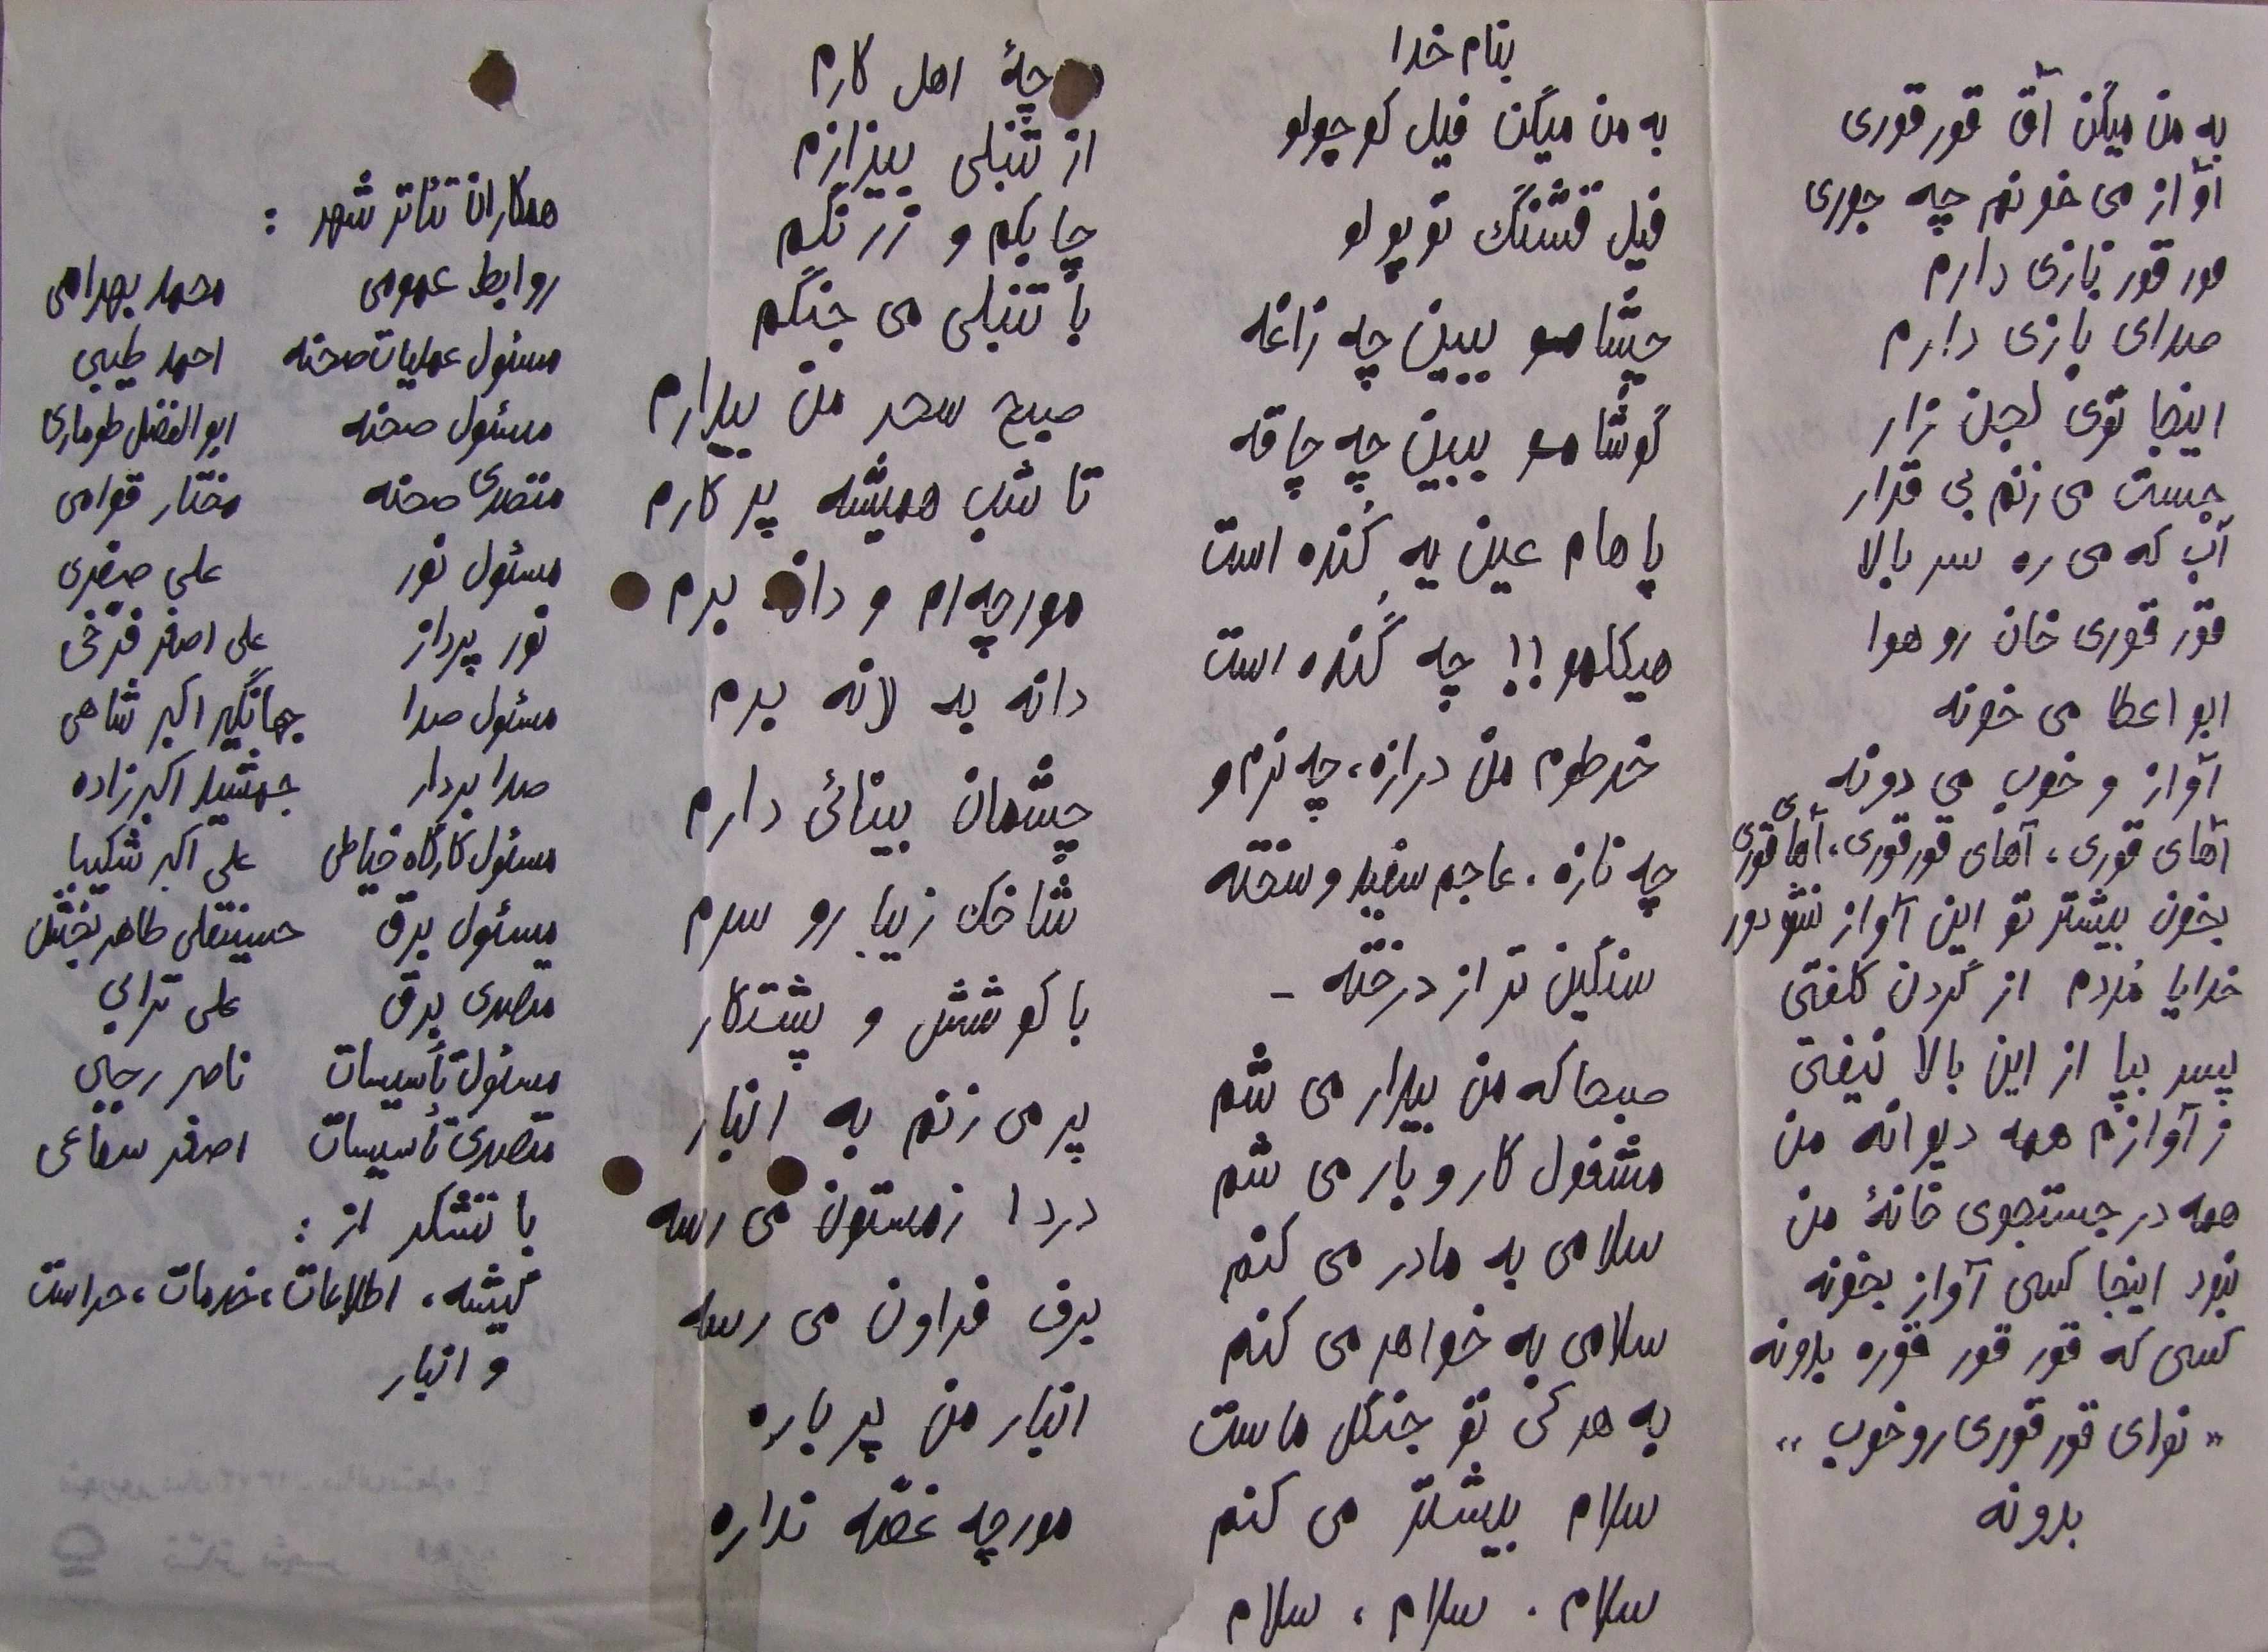 به من میگن آق قورقوری
آواز می خونم چه جوری
قور قور نازی دارم
صدای بازی دارم
اینجا توی لجن زار
جست می زنم بی قرار
آب که می ره سر بالا
قور قوری خان رو هوا
ابو اعطا می خونه
آواز و خوب می دونه
آهای قوری، آهای قورقوری، آهای قوری
بخون بیشتر تو این آواز نشو دور
خدایا مُردم از گردن کلفتی
پسر بپا از این بالا نیفتی
ز آوازم همه دیوانه من
همه در جستجوی خانهٔ من
نبود اینجا کسی آواز بخونه
کسی که قور قور قوره بدونه
« نوای قور قوری رو خوب »
بدونه
بنام خدا
به من میگن فیل کوچولو
فیل قشنگ توپولو
چشامو ببین چه زاغه
گوشامو ببین چه چاقه
پاهام عین یه کُنده است
هیکلمو!! چه گُنده است
خرطوم من درازه، چه نرم و
چه نازه. عاجم سفید و سخته
سنگین تر از درخته -
صبحا که من بیدار می شم
مشغول کار و بار می شم
سلامی به مادر می کنم
سلامی به خواهر می کنم
به هر کی تو جنگل ماست
سلام بیشتر می کنم
سلام . سلام ، سلام
چهٔ اهل کارم
از تنبلی بیزارم
چابکم و زرنگم
با تنبلی می جنگم
صبح سحر من بیدارم
تا شب همیشه پر کارم
مورچه ام و دانه برم
دانه به لانه برم
چشمان بینائی دارم
شاخک زیبا رو سرم
با کوشش و پشتکار
پر می زنم به انبار
دردا زمستون می رسه
برف فراون می رسه
انبار من پر باره
مورچه غصّه نداره
همکاران تئاتر شهر :
روابط عمومی محمد بهرامی
مسئول عملیات صحنه احمد طیبی
مسئول صحنه ابوالفضل طوماری
متصدی صحنه مختار قوامی
مسئول نور علی صفری
نور پرداز علی اصغر فرّخی
مسئول صدا جهانگیر اکبر شاهی
صدابردار جمشید اکبرزاده
مسئول کارگاه خیاطی علی اکبر شکیبا
مسئول برق حسینقلی طاهربخش
متصدی برق علی ترابی
مسئول تأسیسات ناصر رجبی
متصدی تأسیسات اصغر سفاعی
با تشکر از :
گیشه، اطلاعات، خدمات، حراست
و انبار